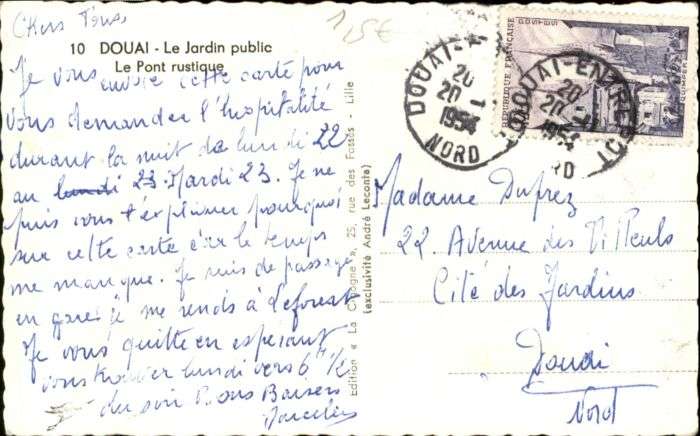 Chers Tous
1,5€
10 DOUAI - Le Jardin public
Le Pont rustique
Je vous envoie cette carte pour
vous demander l'hospitalité
durant la nuit de lundi 22
au lundi 23 Mardi 23. Je ne
puis vous expliquer pourquoi
sur cette carte car le temps
me manque. Je suis de passage
en gare je me rends à Leforest
Je vous quitte en espérant
vous trouver lundi vers 6h 1/2
du soir Bons Baisers
Edition « La Cigogne », 25, rue des Fossés - Lille
(exclusivité André Leconte)
DOUAI
20
20 1
1954
NORD
DOUAI-ENTREPOT
20
20
1954
RD
REPUBLIQUE FRANÇAISE
POSTES
QUIMPER
Madame Duprez
22 Avenue des Tilleuls
Cité des Jardins
Douai
Nord